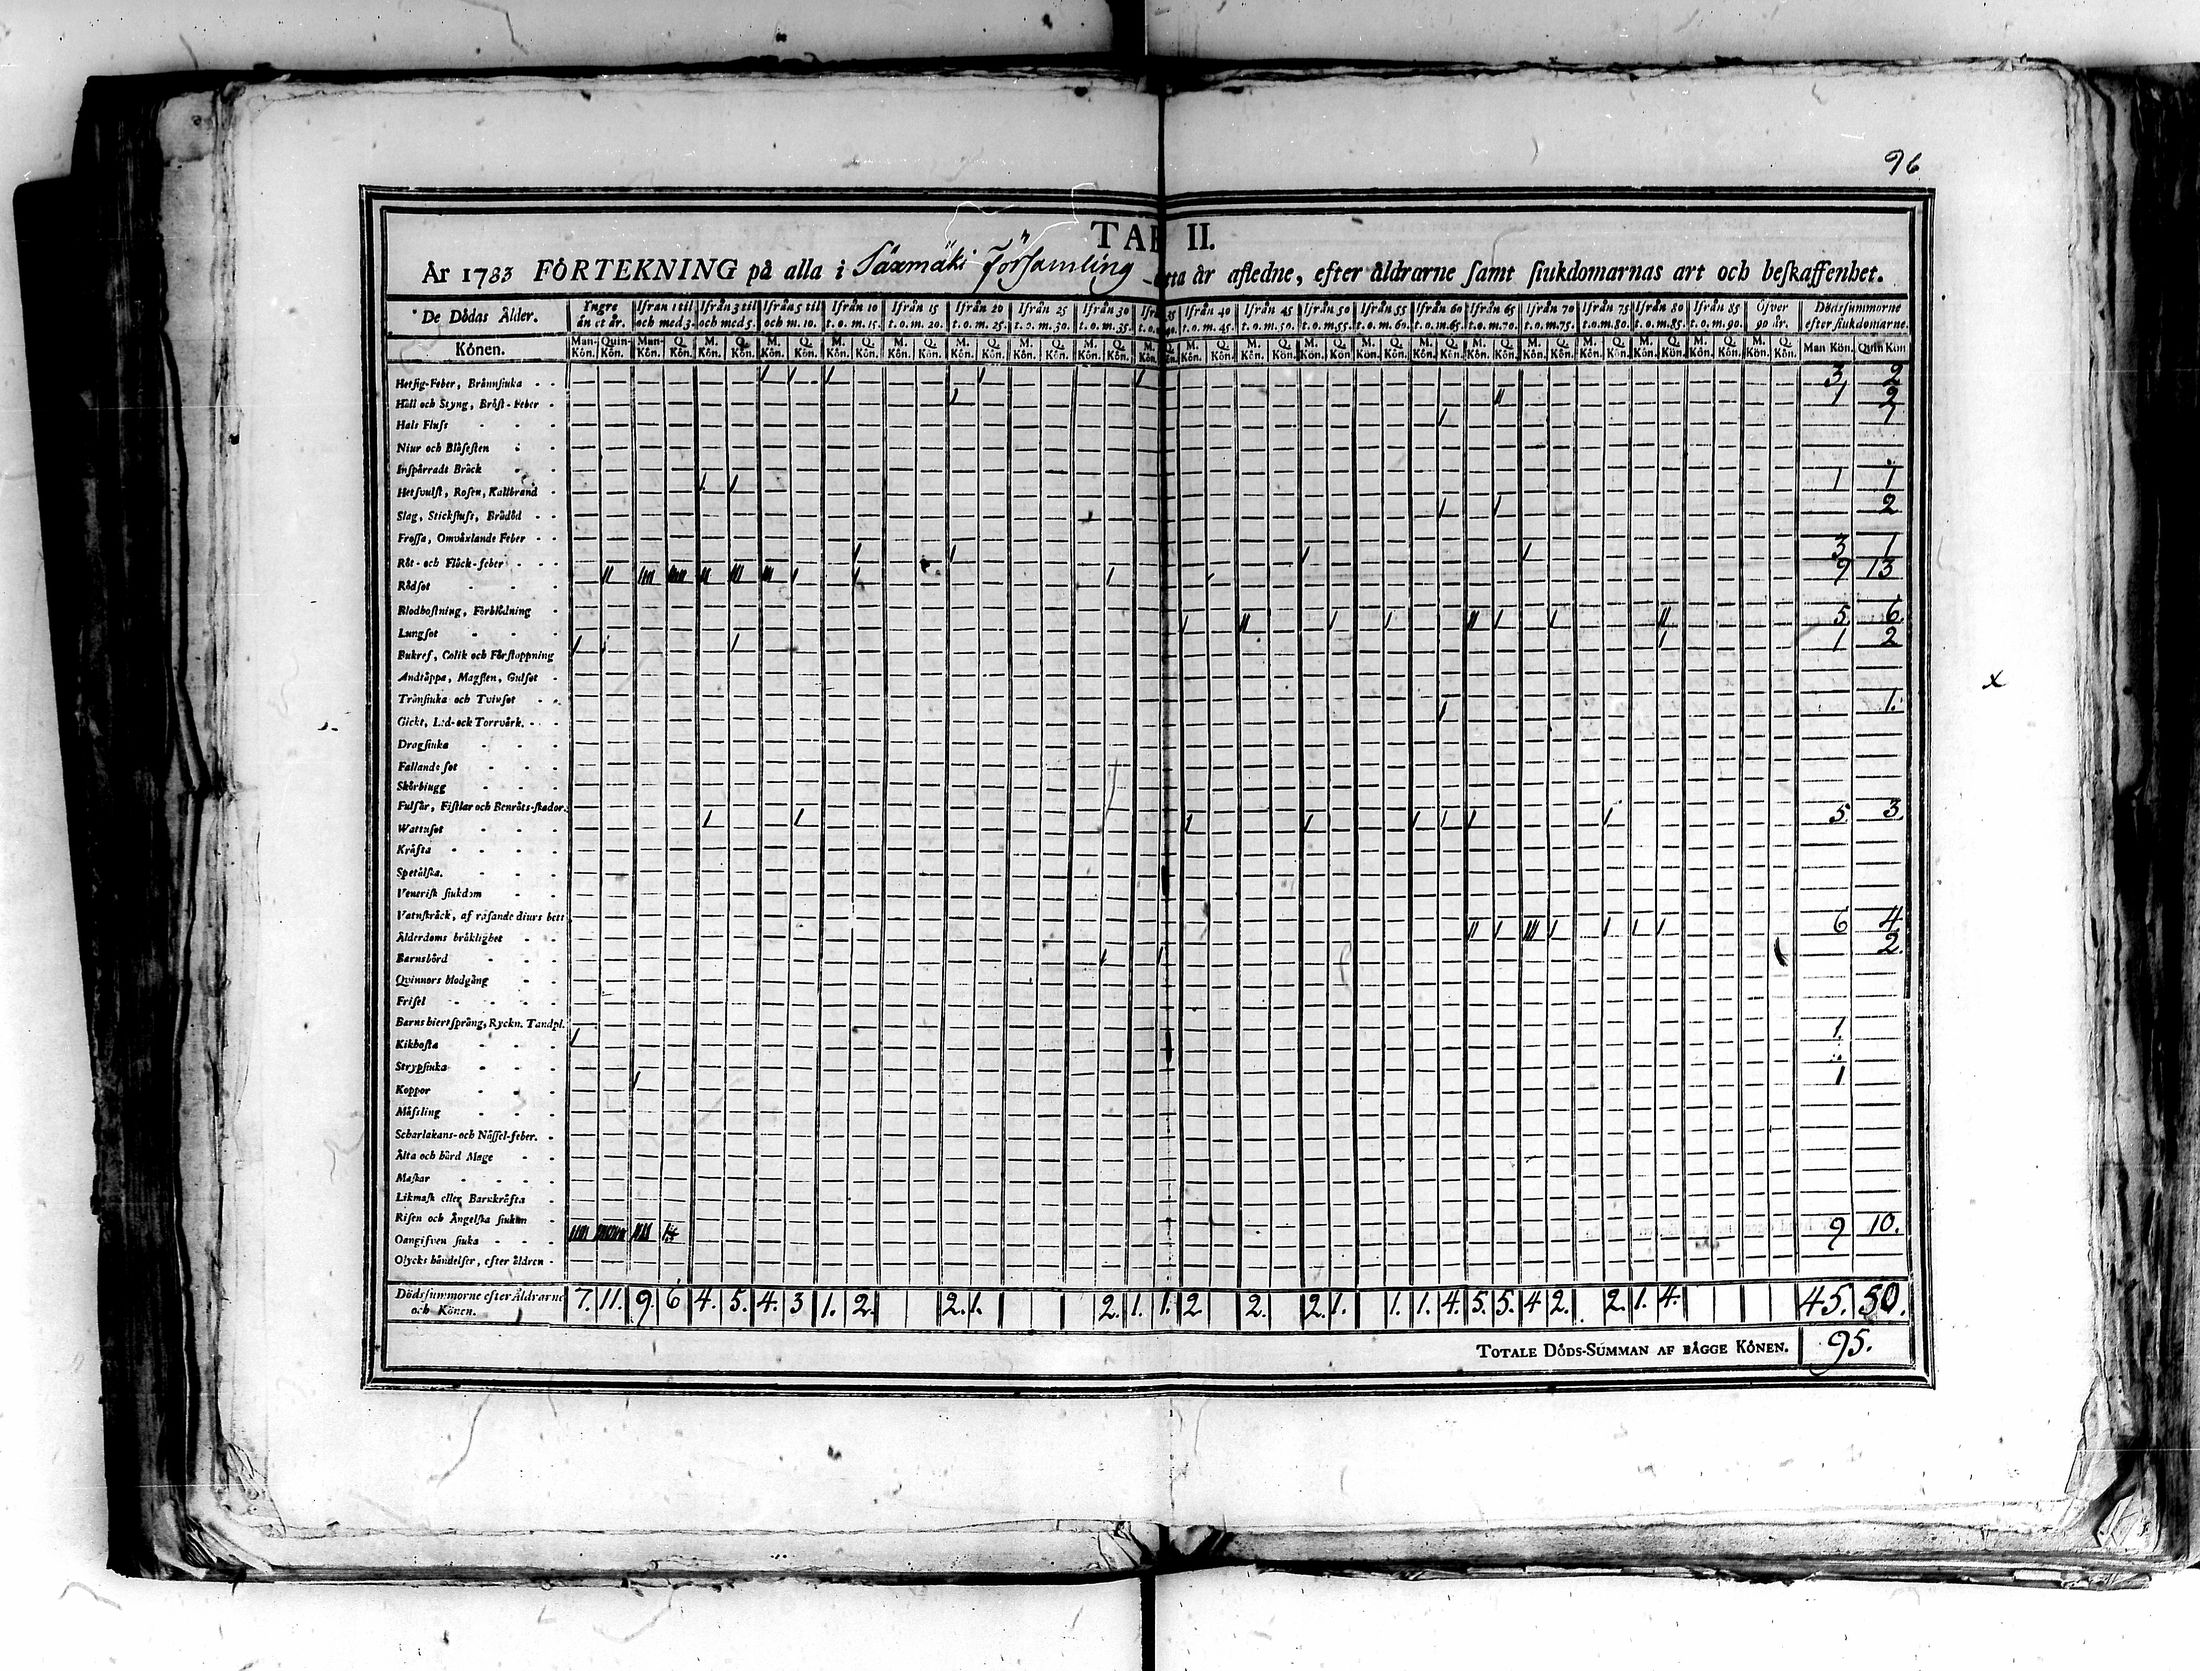 96
TAB II.
År 1783 FÖRTEKNING på alla i Säxmäki Församling detta år afledne, efter åldrarne samt siukdomarnas art och beskaffenhet.
De Dödas Ålder. Yngre än et år. Ifrån 1 til och med 3. Ifrån 3 til och med 5. Ifrån 5 til och m. 10. Ifrån 10 t.o.m. 15. Ifrån 15 t.o.m. 20. Ifrån 20 t.o.m. 25. Ifrån 25 t.o.m. 30. Ifrån 30 t.o.m. 35. Ifrån 35 t.o.m. 40. Ifrån 40 t.o.m. 45. Ifrån 45 t.o.m. 50. Ifrån 50 t.o.m. 55. Ifrån 55 t.o.m. 60. Ifrån 60 t.o.m. 65. Ifrån 65 t.o.m. 70. Ifrån 70 t.o.m. 75. Ifrån 75 t.o.m. 80. Ifrån 80 t.o.m. 85. Ifrån 85 t.o.m. 90. Öfver 90 år. Dödssummorne efter siukdomarne.
Könen. Man-Kön. Quin-Kön. Man-Kön. Q. Kön. M. Kön. Q. Kön. M. Kön. Q. Kön. M. Kön. Q. Kön. M. Kön. Q. Kön. M. Kön. Q. Kön. M. Kön. Q. Kön. M. Kön. Q. Kön. M. Kön. Q. Kön. M. Kön. Q. Kön. M. Kön. Q. Kön. M. Kön. Q. Kön. M. Kön. Q. Kön. M. Kön. Q. Kön. M. Kön. Q. Kön. M. Kön. Q. Kön. M. Kön. Q. Kön. M. Kön. Q. Kön. M. Kön. Q. Kön. M. Kön. Q. Kön. Man Kön. Quin Kön
Hetsig-Feber, Brännsiuka 3 2
Håll och Styng, Bröst-Feber 1 2
Hals Fluss 1
Niur och Blåsesten
Inspärradt Bråck
Hetsvulst, Rosen, Kallbrand 1 1
Slag, Stickfluss, Brådöd 2
Frossa, Omväxlande Feber
Röt- och Fläck-feber 3 1
Rödsot 9 13
Blodhostning, Förblödning
Lungsot 5 6
Bukref, Colik och Förstoppning 1 2
Andtäppa, Magsten, Gulsot
Trånsiuka och Tvinsot
Gickt, Led-ock Torrvärk. 1.
Dragsiuka
Fallande sot
Skörbiugg
Fulsår, Fistlar och Benröts-skador.
Wattusot 5 3
Kräfta
Spetälska.
Venerisk siukdom
Vatnskräck, af rasande diurs bett
Ålderdoms bräklighet 6 4
Barnsbörd 2.
Qvinnors blodgång
Frisel
Barns hiertsprång, Ryckn. Tandpl.
Kikhosta 1.
Strypsiuka
Koppor 1
Mässling
Scharlakans-och Nässel-feber.
Älta och hård Mage
Maskar
Likmask eller Barnkräfta
Risen och Ängelska siukan
Oangifven siuka 9 10.
Olycks händelser, efter åldren
Dödssummorne efter Åldrarne och Könen. 7. 11. 9. 6 4. 5. 4. 3 1. 2. 2. 1. 2. 1. 1. 2 2. 2. 1. 1. 1. 4. 5. 5. 4 2. 2. 1. 4. 45. 50.
TOTALE DÖDS-SUMMAN AF BÄGGE KÖNEN. 95.
x